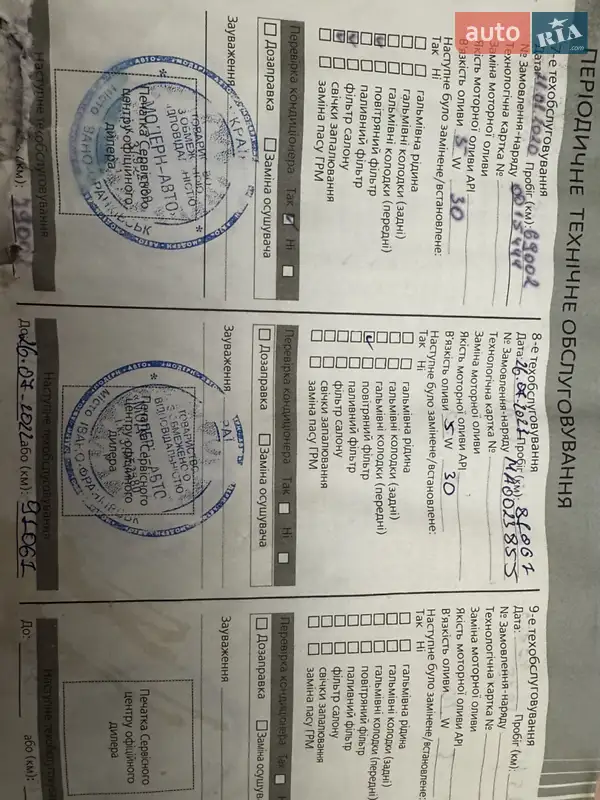 auto RIA.com
ПЕРІОДИЧНЕ ТЕХНІЧНЕ ОБСЛУГОВУВАННЯ
7-е техобслуговування
Дата: Пробіг (км): 69002
№ Замовлення-наряду 0015444
Технологічна картка №
Заміна моторної оливи
Якість моторної оливи API
В'язкість оливи 5 W 30
Наступне було замінене/встановлене:
Так Ні
гальмівна рідина
гальмівні колодки (задні)
гальмівні колодки (передні)
повітряний фільтр
паливний фільтр
фільтр салону
свічки запалювання
заміна пасу ГРМ
Перевірка кондиціонера Так Ні
Дозаправка Заміна осушувача
Зауваження
Печатка Сервісного
центру офіційного
дилера
Наступне техобслуговування
(км):
8-е техобслуговування
Дата: 26.07.2021 Пробіг (км): 81061
№ Замовлення-наряду NA0025855
Технологічна картка №
Заміна моторної оливи
Якість моторної оливи API
В'язкість оливи 5 W 30
Наступне було замінене/встановлене:
Так Ні
гальмівна рідина
гальмівні колодки (задні)
гальмівні колодки (передні)
повітряний фільтр
паливний фільтр
фільтр салону
свічки запалювання
заміна пасу ГРМ
Перевірка кондиціонера Так Ні
Дозаправка Заміна осушувача
Зауваження
Печатка Сервісного
центру офіційного
дилера
Наступне техобслуговування
До: 26.07-2022 або (км): 91061
9-е техобслуговування
Дата: Пробіг (км):
№ Замовлення-наряду
Технологічна картка №
Заміна моторної оливи
Якість моторної оливи API
В'язкість оливи W
Наступне було замінене/встановлене:
Так Ні
гальмівна рідина
гальмівні колодки (задні)
гальмівні колодки (передні)
повітряний фільтр
паливний фільтр
фільтр салону
свічки запалювання
заміна пасу ГРМ
Перевірка кондиціонера Так Ні
Дозаправка Заміна осушувача
Зауваження
Печатка Сервісного
центру офіційного
дилера
Наступне техобслуговування
До: або (км):